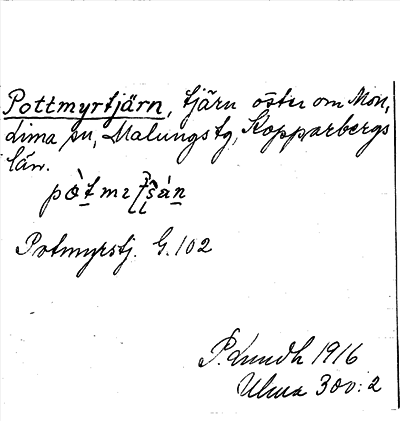 Pottmyrtjärn, tjärn öster om Mon,
Lima sn, Malungs tg, Kopparbergs
län.
Potmyrstj. G. 102
P. Lundh 1916
Ulma 300:2